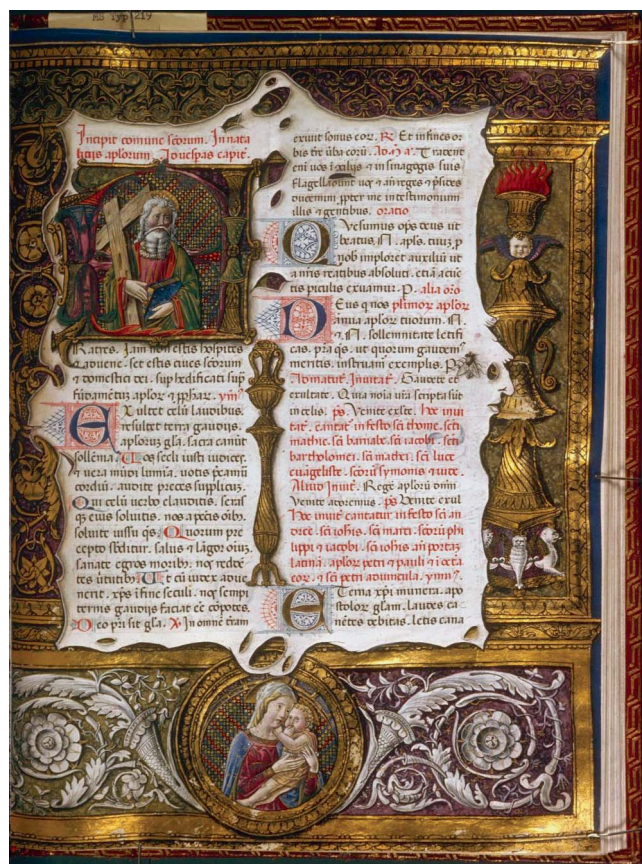 MS Typ 219
Incipit comune scorum. In nata
litiis aplorum. Ad uespas capit.
Ratres. Iam non estis hospites
& aduene. set estis ciues scorum
& domestici dei. sup hedificati sup
fūdamētū aplor & pphar. ymn
Exultet celū laudibus.
resultet terra gaudijs.
aplorus gla. sacra canūt
sollēnia. Uos secli iusti iudices.
& uera mūdi lumīa. uotis pcamū
cordiū. audite preces supplicūs.
Qui celū uerbo clauditis. seras
qs eius soluitis. nos a pctis oībs.
soluite iussu qs. Quorum pre
cepto sbditur. salus & lāgor oiuz.
sanate egros moribs. nos reddē
tes uitutibs. Ut cū iudex adue
nerit. xps ī fine seculi. nos sempi
terni gaudijs faciat eē cōpotes.
Deo pri sit gla. In omnē tram
exiuit sonus eor. R. Et in fines or
bis
Tradent
eni uos
in sinagogis suis
flagellabunt uos & an reges & psides
ducemini ppter me in testimonium
illis & gentibus. oratio
Quesumus ops deus ut
beatus N. apls. tuus p
nob imploret auxiliū ut
a nris reatibus absoluti. etiā a cūc
tis piculis exuamur. P. alia oro
Deus q nos plimor aplor
annua aplor tuorum. N.
& N. sollemnitate letifi
cas. pra qs. ut quorum gaudem
meritis. instruam exemplis. P.
Ad matut. Inuitat. Gaudete et
exultate. Quia noīa uīa scripta sūt
in celis. ps Venite exlte. Hoc inui
tat. cantat in festo sci thome. sci
mathie. sci barnabe. sci iacobi. sci
bartholomei. sci mathei. sci luce
euāgeliste. scorum symonis & iude.
Aliud Inuit. Regē aplorū dnm
Venite adoremus. ps Venite exul
Hoc inuit cantatur in festo sci an
dree. sci iohis. sci marci. scorū phi
lippi & iacobi. sci iohis. an portaz
latinā. aplor petri & pauli & octa
eor. & sci petri aduincula. ymn
Eterna xpi munera. apo
stolor glam. laudes ca
nētes debitas. letis cana